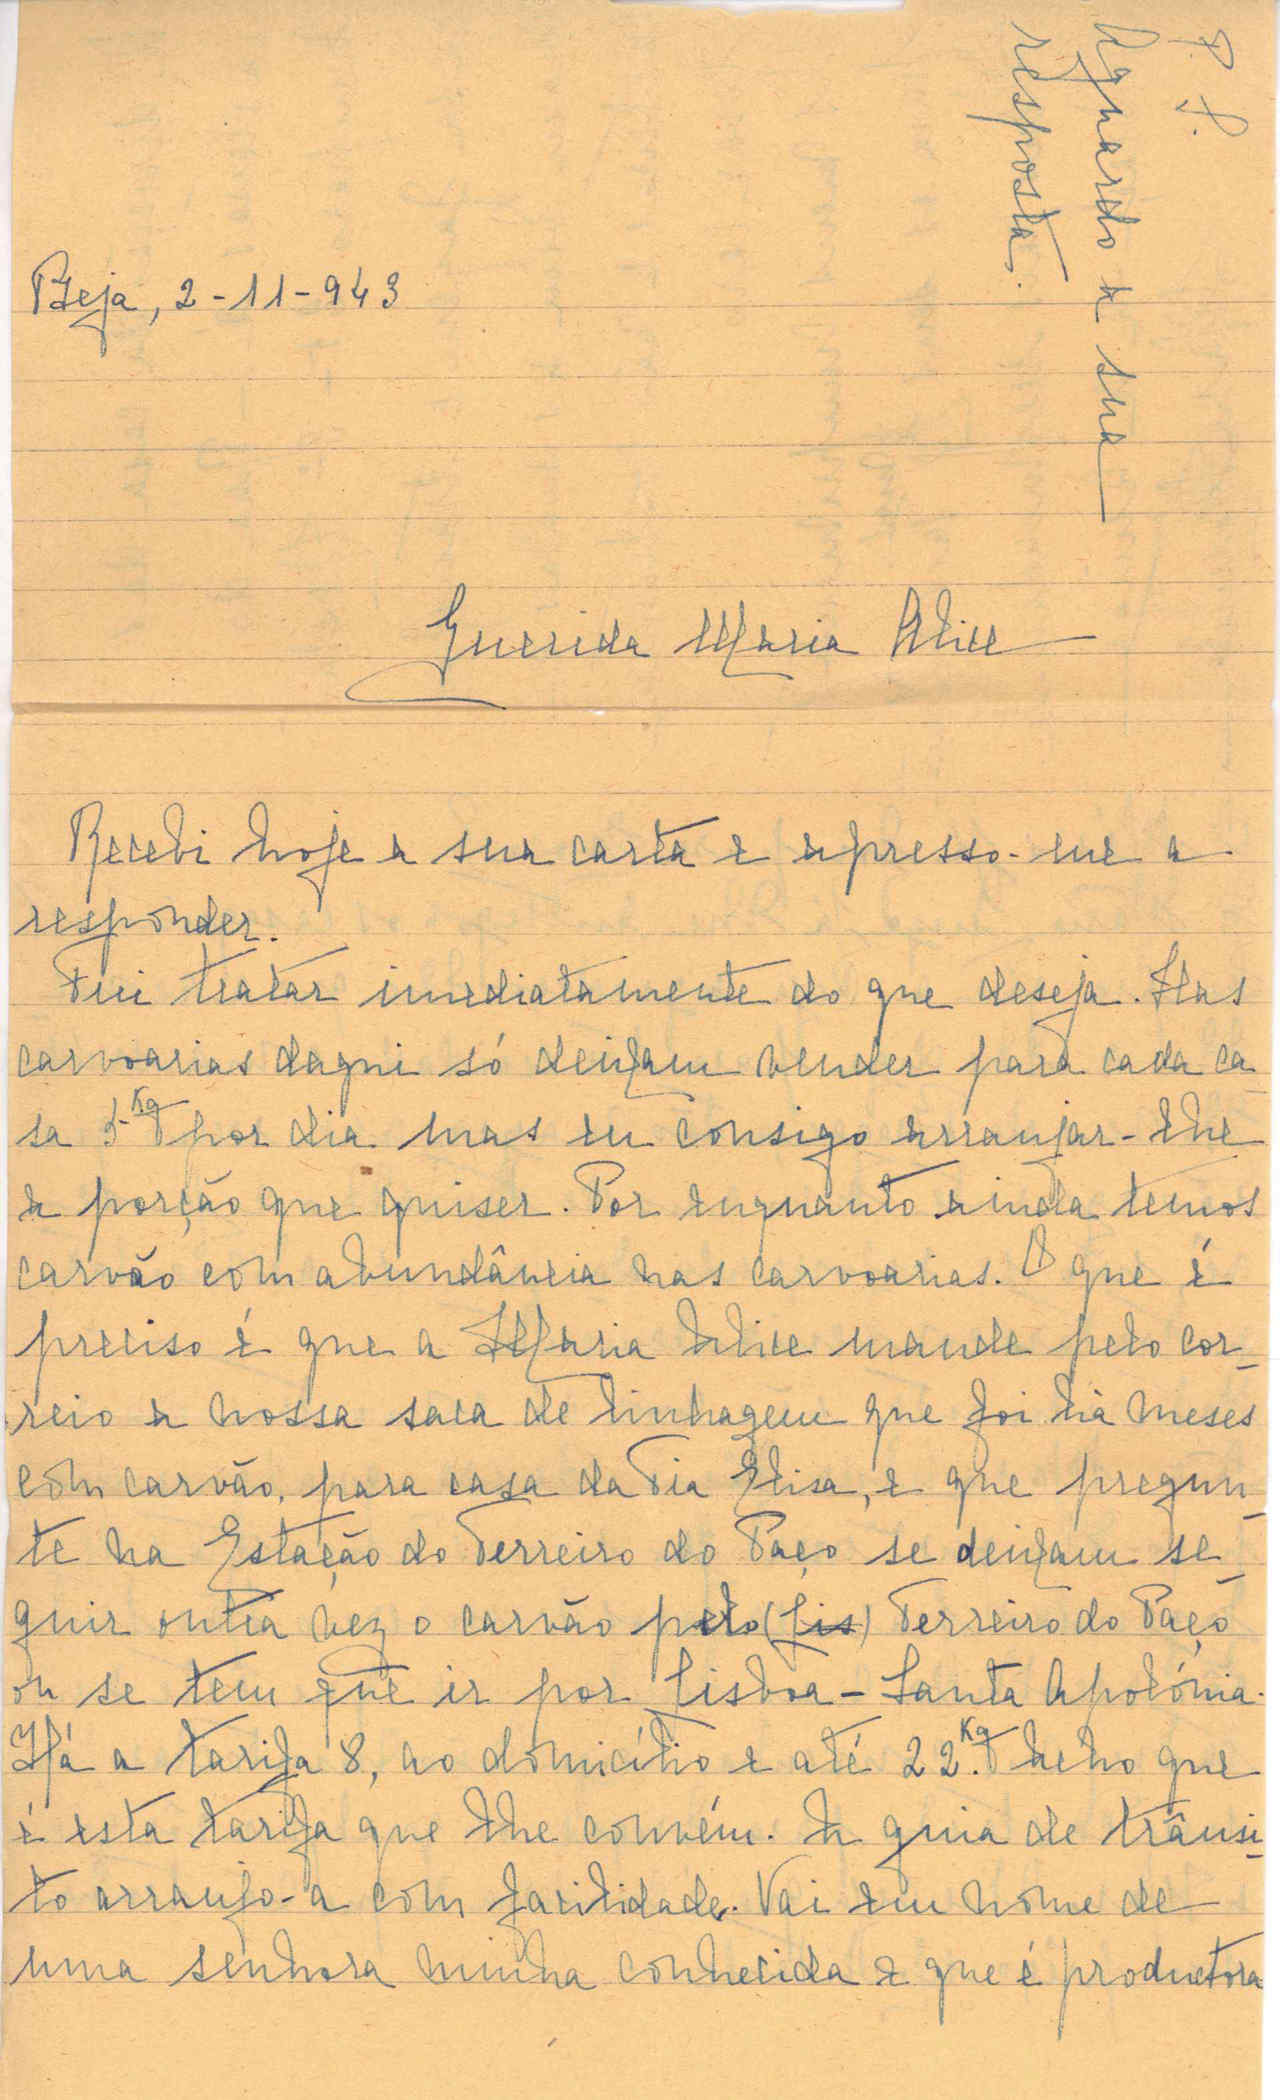 P. S.
Aguardo a sua
resposta.
Beja, 2-11-943
Querida Maria Alice
Recebi hoje a sua carta e apresso-me a
responder.
Fui tratar imediatamente do que deseja. Nas
carvoarias daqui só deixam vender para cada ca-
sa 5 Kg por dia mas eu consigo arranjar-lhe
a porção que quiser. Por enquanto ainda temos
carvão com abundância nas carvoarias. O que é
preciso é que a Maria Alice mande pelo cor-
reio a nossa saca de linhagem que foi há meses
com carvão, para casa da Tia Elisa, e que pregun-
te na Estação do Terreiro do Paço se deixam se-
guir outra vez o carvão pelo (Lis) Terreiro do Paço
ou se tem que ir por Lisboa - Santa Apolónia.
Há a tarifa 8, ao domicílio e até 22 Kg. Acho que
é esta tarifa que lhe convém. A guia de trânsi-
to arranjo-a com facilidade. Vai em nome de
uma senhora minha conhecida e que é productora